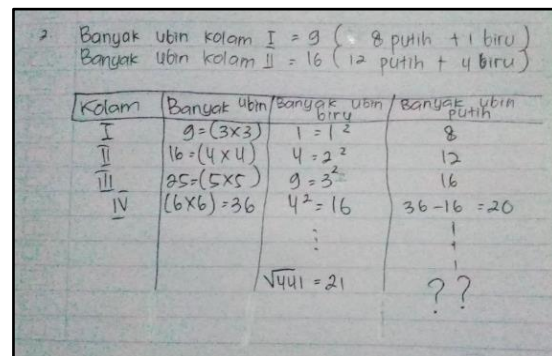 2. Banyak ubin kolam I = 9 ( 8 putih + 1 biru )
Banyak ubin kolam II = 16 ( 12 putih + 4 biru )
Kolam Banyak ubin Banyak ubin biru Banyak ubin putih
I 9 = (3x3) 1 = 1² 8
II 16 = (4 x 4) 4 = 2² 12
III 25 = (5x5) 9 = 3² 16
IV (6x6) = 36 4² = 16 36 - 16 = 20
√441 = 21 ??